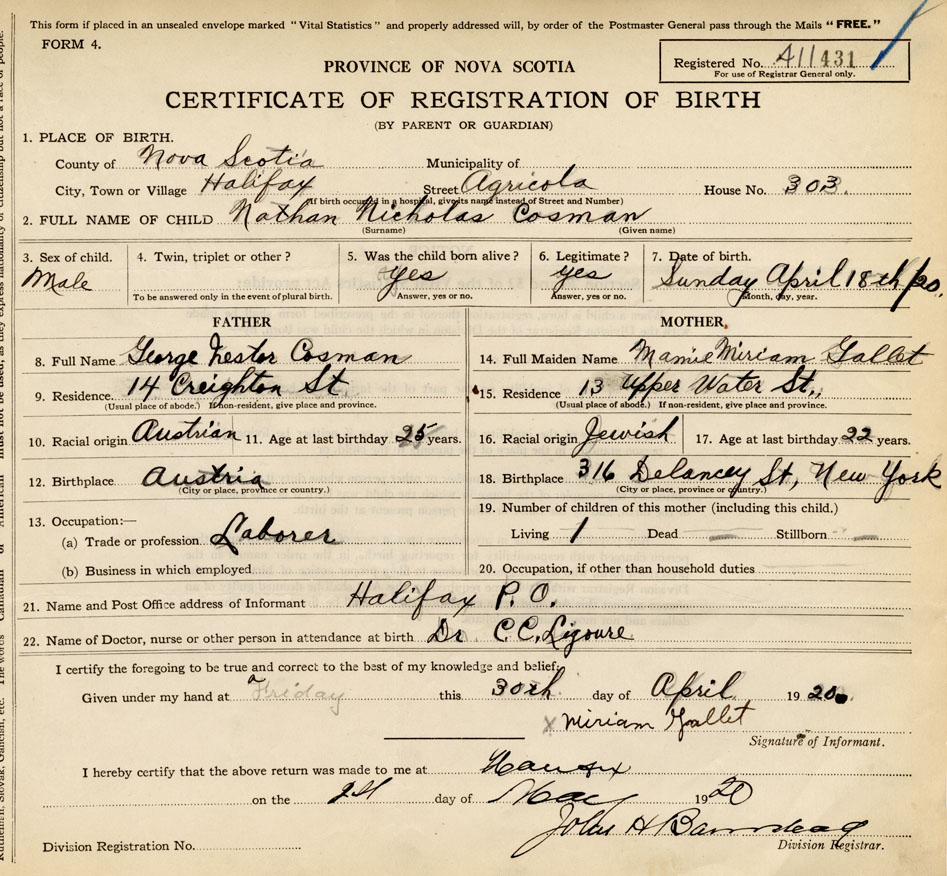 This form if placed in an unsealed envelope marked "Vital Statistics" and properly addressed will, by order of the Postmaster General pass through the Mails "FREE."
FORM 4.
Registered No. 411431
For use of Registrar General only.
PROVINCE OF NOVA SCOTIA
CERTIFICATE OF REGISTRATION OF BIRTH
(BY PARENT OR GUARDIAN)
1. PLACE OF BIRTH.
County of Nova Scotia Municipality of
City, Town or Village Halifax Street Agricola House No. 303.
(If birth occured in a hospital, give its name instead of Street and Number)
2. FULL NAME OF CHILD Nathan Nicholas Cosman
(Surname) (Given name)
3. Sex of child. 4. Twin, triplet or other? 5. Was the child born alive? 6. Legitimate? 7. Date of birth.
Male yes yes Sunday April 18th/20.
To be answered only in the event of plural birth. Answer, yes or no. Answer, yes or no. Month, day, year.
FATHER MOTHER.
8. Full Name George Nestor Cosman 14. Full Maiden Name Mamie Miriam Gallet
9. Residence. 14 Creighton St. 15. Residence 13 Upper Water St.,
(Usual place of abode.) If non-resident, give place and province. (Usual place of abode.) If non-resident, give place and province.
10. Racial origin Austrian 11. Age at last birthday 25 years. 16. Racial origin Jewish 17. Age at last birthday 22 years.
12. Birthplace Austria 18. Birthplace 316 Delancey St, New York
(City or place, province or country.) (City or place, province or country.)
13. Occupation:— 19. Number of children of this mother (including this child.)
(a) Trade or profession. Laborer Living 1 Dead — Stillborn —
(b) Business in which employed 20. Occupation, if other than household duties
21. Name and Post Office address of Informant Halifax P.O.
22. Name of Doctor, nurse or other person in attendance at birth Dr C.C. Ligoure
I certify the foregoing to be true and correct to the best of my knowledge and belief.
Given under my hand at Friday this 30th day of April 1920.
x Miriam Gallet
Signature of Informant.
I hereby certify that the above return was made to me at
on the day of May 1920
John H Barnstead
Division Registrar.
Division Registration No.